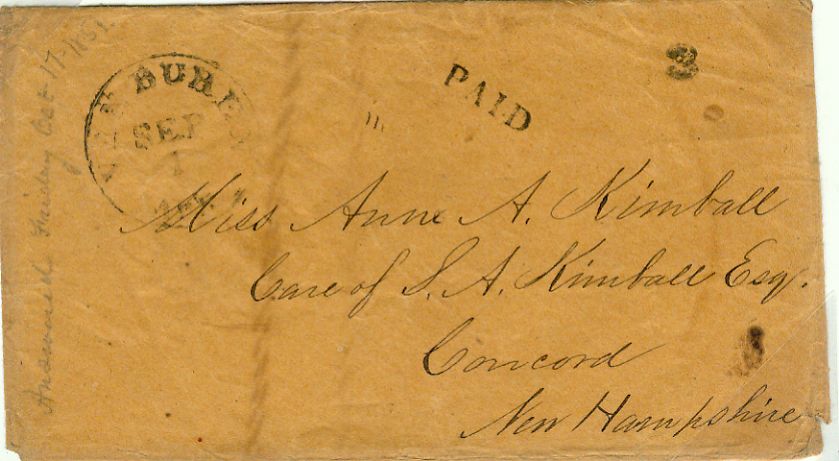 VAN BUREN
SEP
1
ARK.
PAID
3
Miss Anne A. Kimball
Care of S. A. Kimball Esq.
Concord
New Hampshire
Answered Friday Oct 17